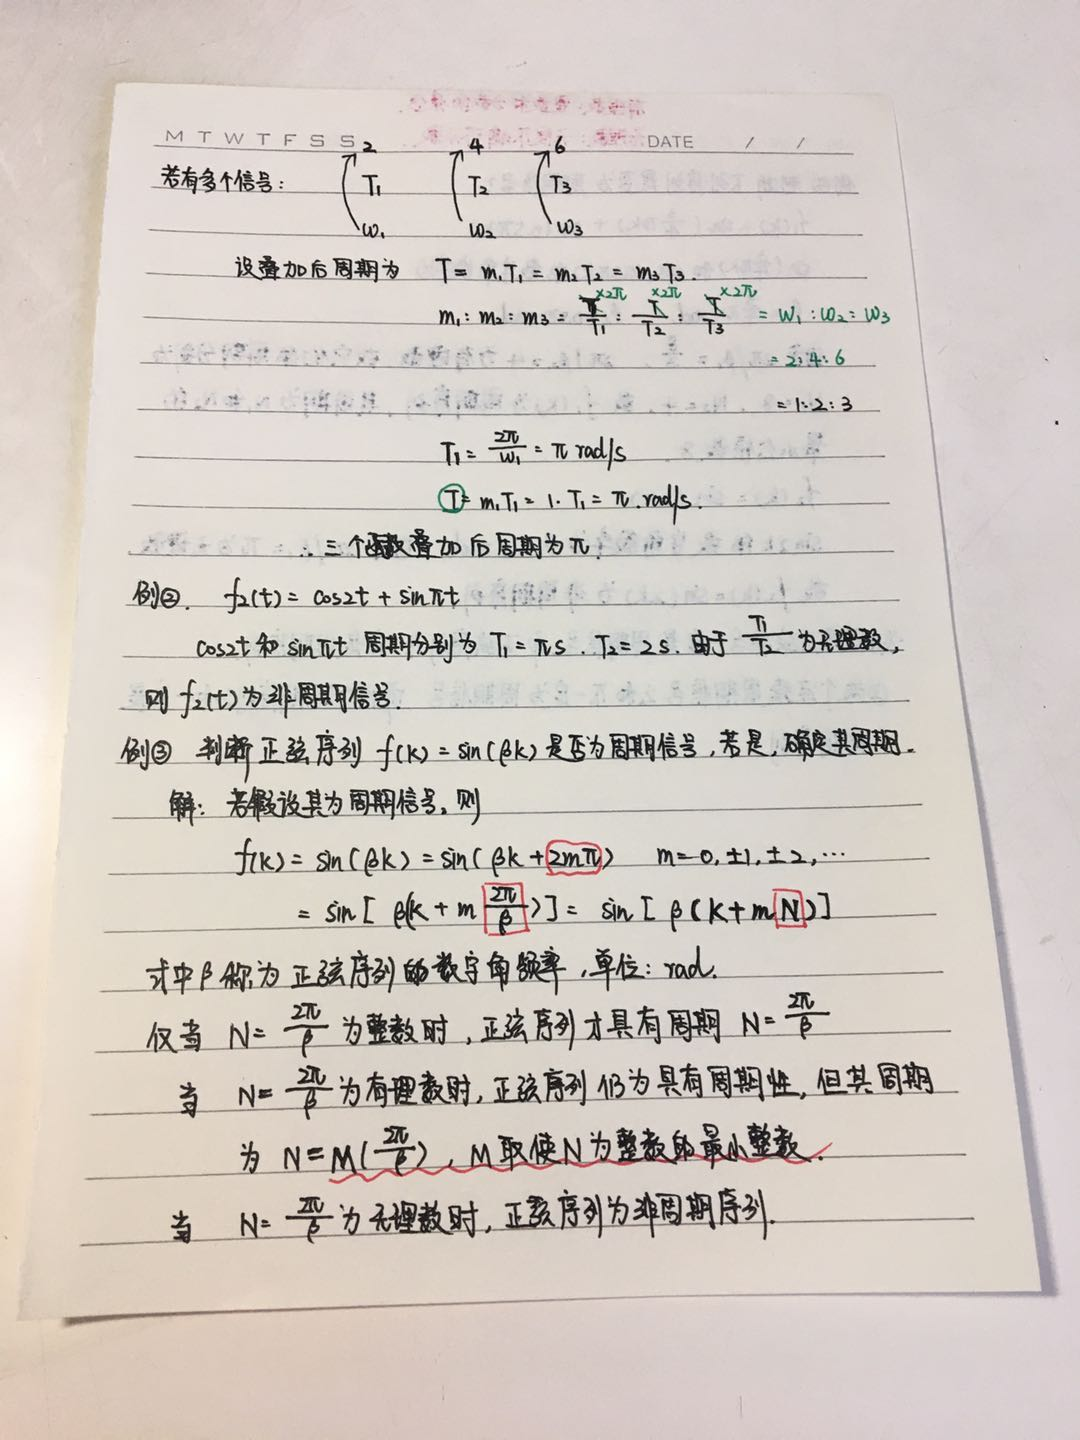 M T W T F S S DATE / /
2 4 6
若有多个信号: T₁ T₂ T₃
ω₁ ω₂ ω₃
设叠加后周期为 T = m₁T₁ = m₂T₂ = m₃T₃.
m₁: m₂: m₃ = T×2π/T₁ : T×2π/T₂ : T×2π/T₃ = ω₁:ω₂:ω₃
= 2:4:6
= 1:2:3
T₁ = 2π/ω₁ = π rad/s
T = m₁T₁ = 1·T₁ = π.rad/s.
∴ 三个函数叠加后周期为π.
例②. f₂(t) = cos2t + sinπt
cos2t 和 sinπt 周期分别为 T₁ = πs. T₂ = 2s. 由于 T₁/T₂ 为无理数,
则 f₂(t)为非周期信号.
例③ 判断正弦序列 f(k) = sin(βk) 是否为周期信号,若是,确定其周期.
解: 若假设其为周期信号,则
f(k) = sin(βk) = sin(βk + 2mπ) m = 0, ±1, ±2, ⋯
= sin[ β(k + m 2π/β)] = sin[ β(k + mN)]
式中β称为正弦序列的数字角频率,单位: rad.
仅当 N = 2π/β 为整数时,正弦序列才具有周期 N = 2π/β
当 N = 2π/β 为有理数时,正弦序列仍为具有周期性,但其周期
为 N = M(2π/β), M取使N为整数的最小整数.
当 N = 2π/β 为无理数时,正弦序列为非周期序列.